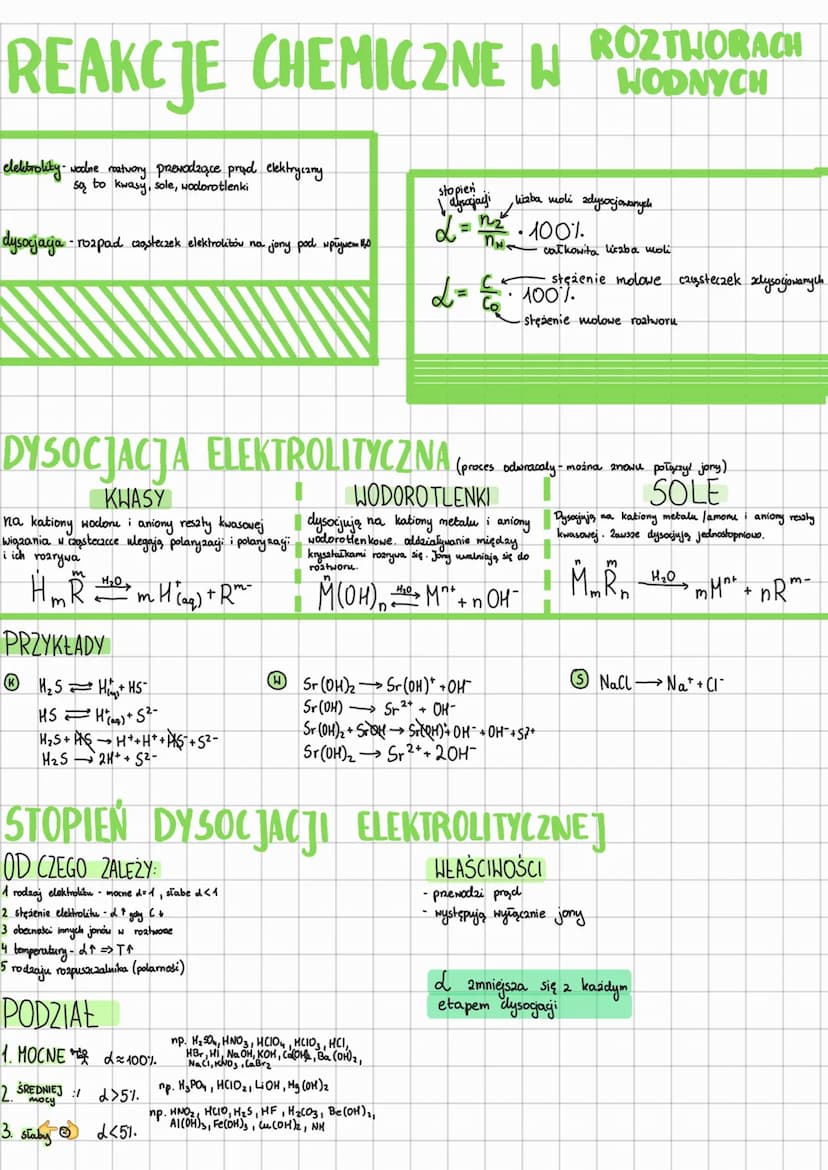 REAKCJE CHEMICZNE W ROZTWORACH
WODNYCH
elektrolity - wodne roztwory przewodzące prąd elektryczny
są to kwasy, sole, wodorotlenki
dysocjacja - rozpad cząsteczek elektrolitów na jony pod wpływem H₂O
stopień
dysocjacji
liczba moli zdysocjowanych
α = n₂/nw · 100%
całkowita liczba moli
α = C/C₀ · 100%
stężenie molowe cząsteczek zdysocjowanych
stężenie molowe roztworu
DYSOCJACJA ELEKTROLITYCZNA (proces odwracalny - można znowu połączyć jony)
KWASY
na kationy wodoru i aniony reszty kwasowej
wiązania w cząsteczce ulegają polaryzacji i polaryzacji
i ich rozrywa
HₘR ⇌ m H⁺(aq) + Rᵐ⁻
H₂O
WODOROTLENKI
dysocjują na kationy metalu i aniony
wodorotlenkowe. oddziaływanie między
kryształkami rozrywa się. Jony uwalniają się do
roztworu.
M(OH)ₙ ⇌ Mⁿ⁺ + n OH⁻
H₂O
SOLE
Dysocjują na kationy metalu /amonu i aniony reszty
kwasowej. Zawsze dysocjują jednostopniowo.
MₘRₙ → mMⁿ⁺ + nRᵐ⁻
H₂O
PRZYKŁADY
K
H₂S ⇌ H⁺(aq) + HS⁻
HS ⇌ H⁺(aq) + S²⁻
H₂S + HS → H⁺ + H⁺ + HS⁻ + S²⁻
H₂S → 2H⁺ + S²⁻
W
Sr(OH)₂ → Sr(OH)⁺ + OH⁻
Sr(OH) → Sr²⁺ + OH⁻
Sr(OH)₂ + SrOH → Sr(OH)⁺ + OH⁻ + OH⁻ + S²⁺
Sr(OH)₂ → Sr²⁺ + 2OH⁻
S
NaCl → Na⁺ + Cl⁻
STOPIEŃ DYSOCJACJI ELEKTROLITYCZNEJ
OD CZEGO ZALEŻY:
1 rodzaj elektrolitu - mocne α=1, słabe α<1
2 stężenie elektrolitu - α↑ gdy C↓
3 obecności innych jonów w roztworze
4 temperatury - α↑ ⇒ T↑
5 rodzaju rozpuszczalnika (polarność)
WŁAŚCIWOŚCI
- przewodzi prąd
- występują wyłącznie jony
α zmniejsza się z każdym
etapem dysocjacji
PODZIAŁ
1. MOCNE α≈100%
np. H₂SO₄, HNO₃, HClO₄, HClO₃, HCl,
HBr, HI, NaOH, KOH, Ca(OH)₂, Ba(OH)₂,
NaCl, KNO₃, CaBr₂
2. ŚREDNIEJ
mocy :/ α>5%
np. H₃PO₄, HClO₂, LiOH, Mg(OH)₂
3. słaby α<5%
np. HNO₂, HClO, H₂S, HF, H₂CO₃, Be(OH)₂,
Al(OH)₃, Fe(OH)₃, Cu(OH)₂, NH